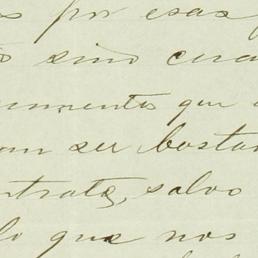 s por esas
sino cua
umento que
an ser bastan
ntrata, salvo
lo que nos